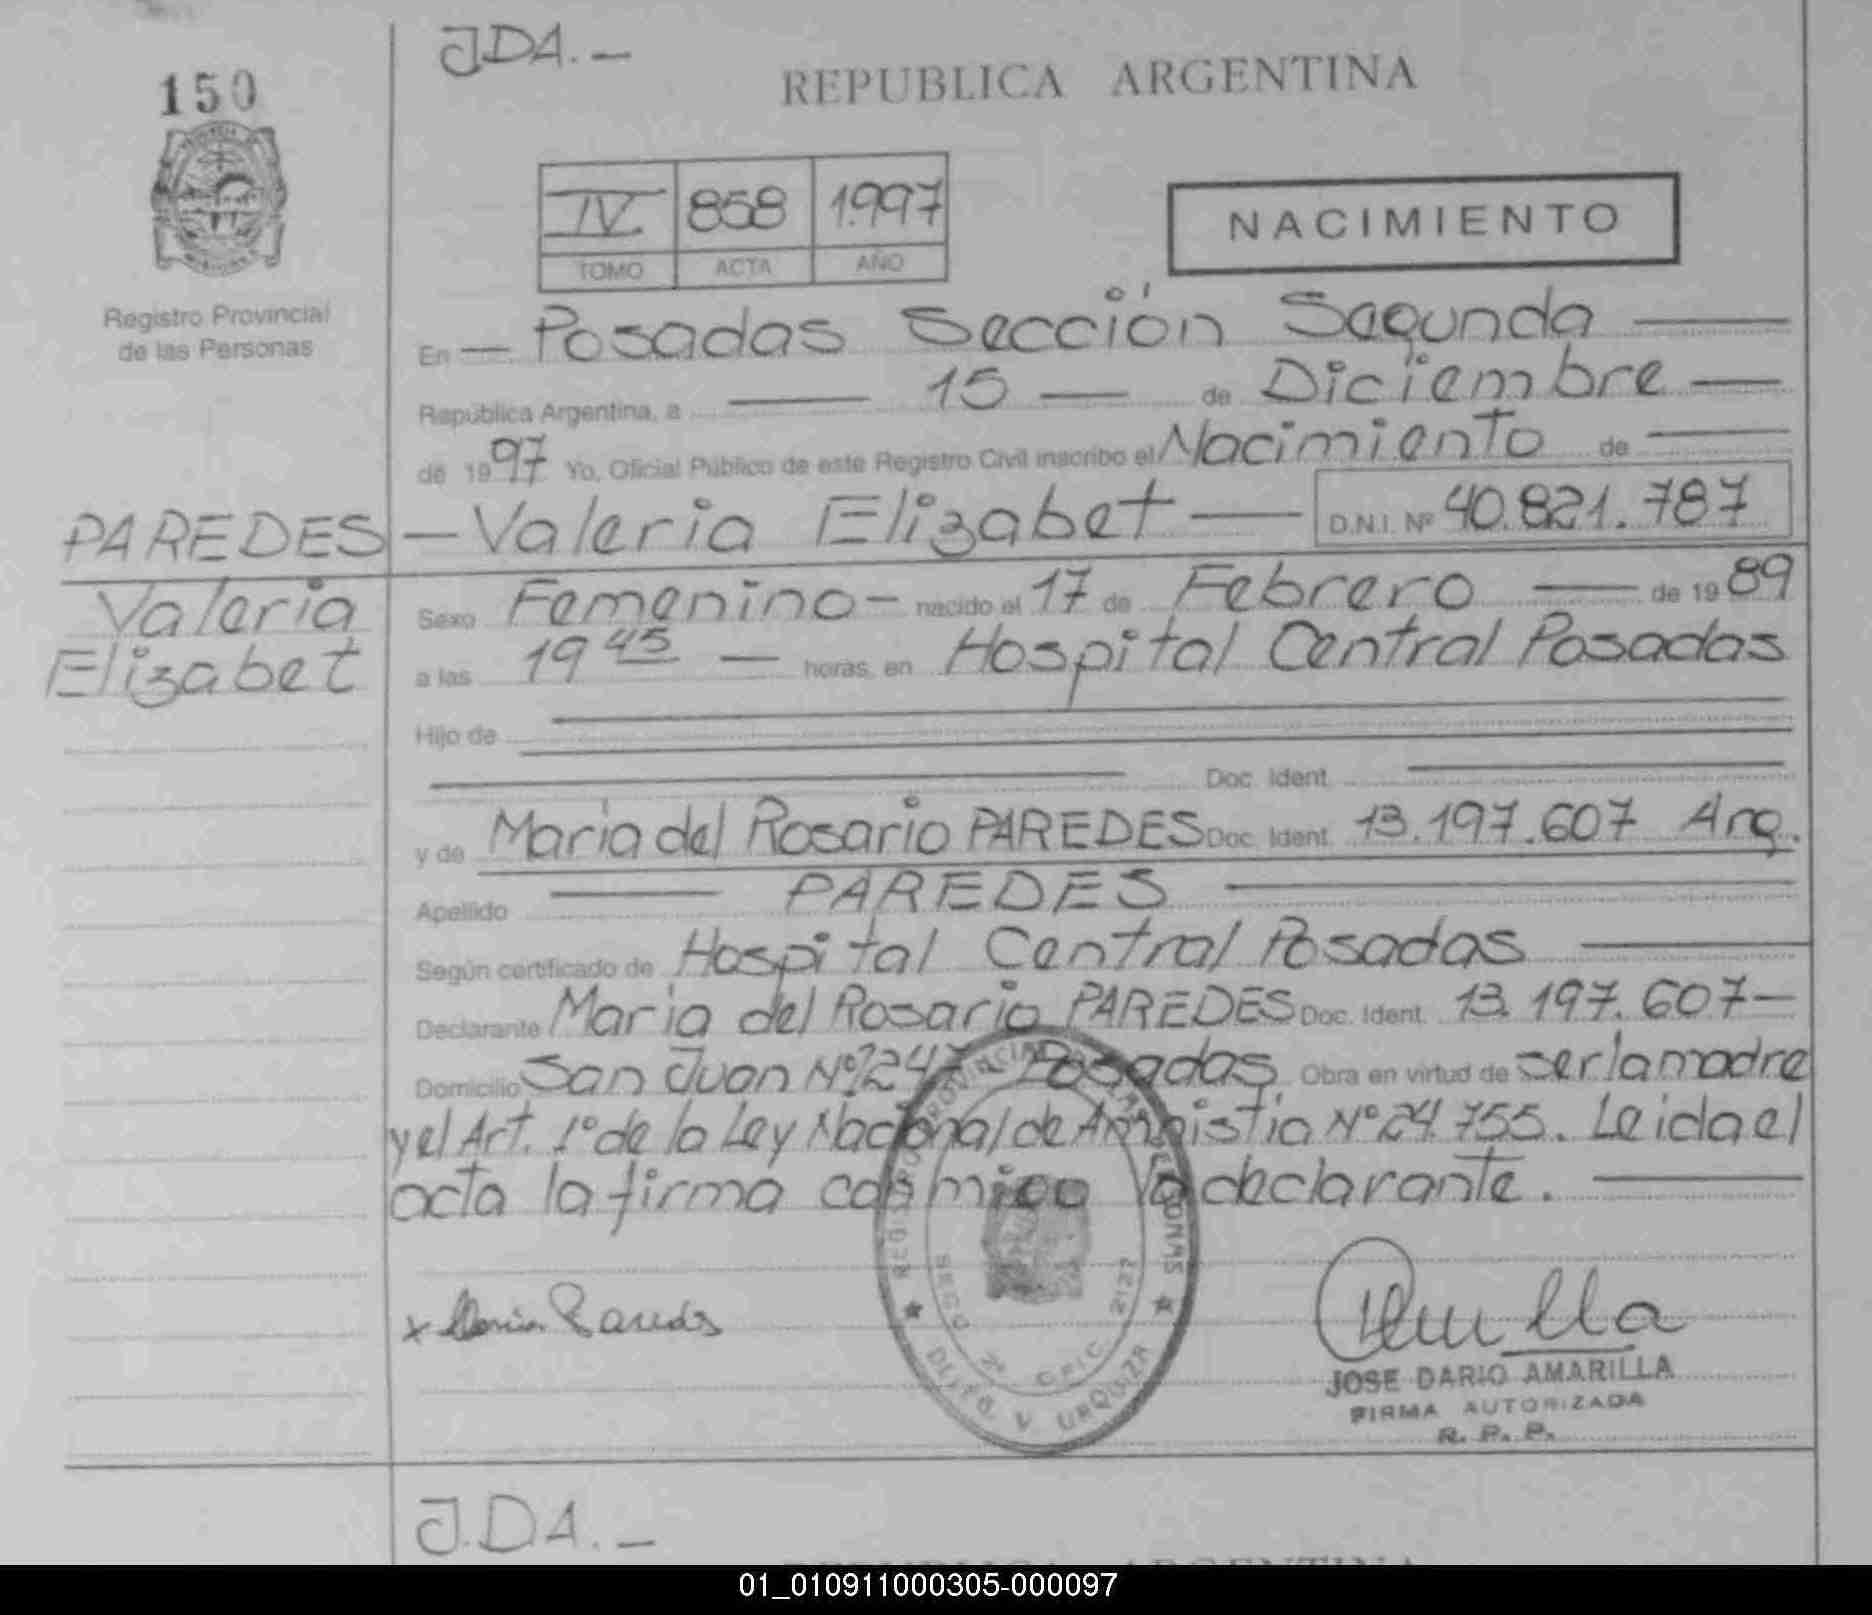 J.DA.-
150
REPUBLICA ARGENTINA
IV 858 1.997
TOMO ACTA AÑO
NACIMIENTO
Registro Provincial
de las Personas
En Posadas Sección Segunda
República Argentina, a 15 de Diciembre
de 1997 Yo, Oficial Público de este Registro Civil inscribo el Nacimiento de
PAREDES Valeria Elizabet D.N.I. Nº 40.821.787
Valeria
Elizabet
Sexo Femenino - nacido el 17 de Febrero de 1989
a las 19 45 horas, en Hospital Central Posadas
Hijo de
Doc. Ident.
y de Maria del Rosario PAREDES Doc. Ident. 13.197.607 Arg.
Apellido PAREDES
Según certificado de Hospital Central Posadas
Declarante Maria del Rosario PAREDES Doc. Ident. 13.197.607-
Domicilio San Juan Nº 247 Posadas Obra en virtud de ser la madre
y el Art. 1º de la Ley Nacional de Amnistia Nº 24.755. Leida el
acta la firma conmigo la declarante.
REGISTRO PROVINCIAL DE LAS PERSONAS
SECC 2ª OFIC 2127
DPTO. V URQUIZA
x Maria Paredes
JOSE DARIO AMARILLA
FIRMA AUTORIZADA
R. P. P.
J.DA.-
REPUBLICA ARGENTINA
01_010911000305-000097